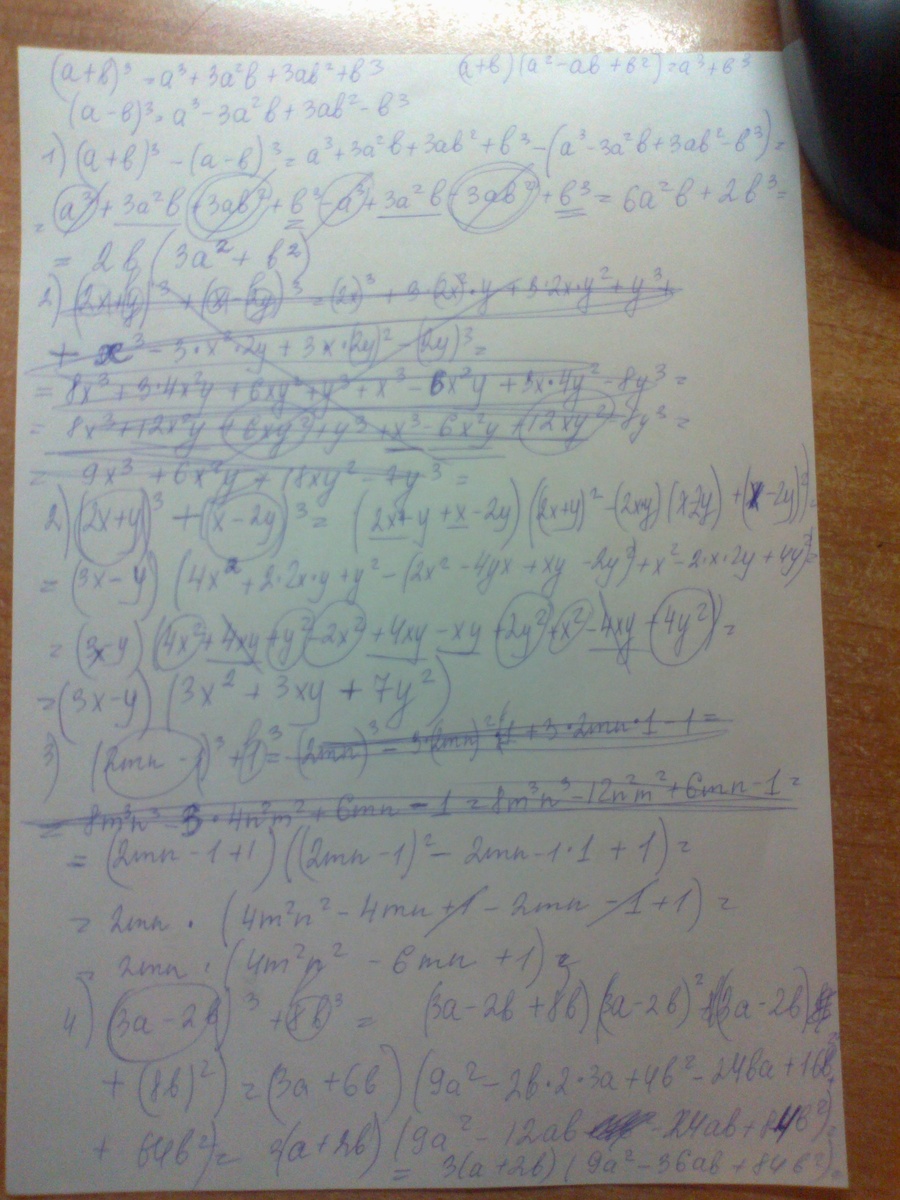 (a+b)³ = a³+3a²b+3ab²+b³ (a+b)(a²-ab+b²)=a³+b³
(a-b)³= a³-3a²b+3ab²-b³
1) (a+b)³-(a-b)³= a³+3a²b+3ab²+b³-(a³-3a²b+3ab²-b³)=
= a³+3a²b+3ab²+b³-a³+3a²b-3ab²+b³= 6a²b+2b³=
= 2b(3a²+b²)
2) (2x+y)³+(x-2y)³=(2x)³+3·(2x)²·y+3·2x·y²+y³+
+ x³-3·x²·2y+3x·(2y)²-(2y)³=
= 8x³+3·4x²y+6xy²+y³+x³-6x²y+3x·4y²-8y³=
= 8x³+12x²y+6xy²+y³+x³-6x²y+12xy²-8y³=
= 9x³+6x²y+18xy²-7y³=
2) (2x+y)³+(x-2y)³= (2x+y+x-2y)((2x+y)²-(2x+y)(x-2y)+(x-2y)²)=
= (3x-y)(4x²+2·2x·y+y²-(2x²-4yx+xy-2y²)+x²-2·x·2y+4y²)=
= (3x-y)(4x²+4xy+y²-2x²+4xy-xy+2y²+x²-4xy+4y²)=
=(3x-y)(3x²+3xy+7y²)
3) (2mn-1)³+1³=(2mn)³-3·(2mn)²·1+3·2mn·1-1=
= 8m³n³-3·4n²m²+6mn-1=8m³n³-12n²m²+6mn-1=
= (2mn-1+1)((2mn-1)²-2mn-1·1+1)=
= 2mn·(4m²n²-4mn+1-2mn-1+1)=
= 2mn·(4m²n²-6mn+1)=
4) (3a-2b)³+(8b)³= (3a-2b+8b)(3a-2b)²-(3a-2b)8b
+(8b)²)=(3a+6b)(9a²-2b·2·3a+4b²-24ba+16b²
+64b²)= 3(a+2b)(9a²-12ab-24ab+84b²)=
= 3(a+2b)(9a²-36ab+84b²)=